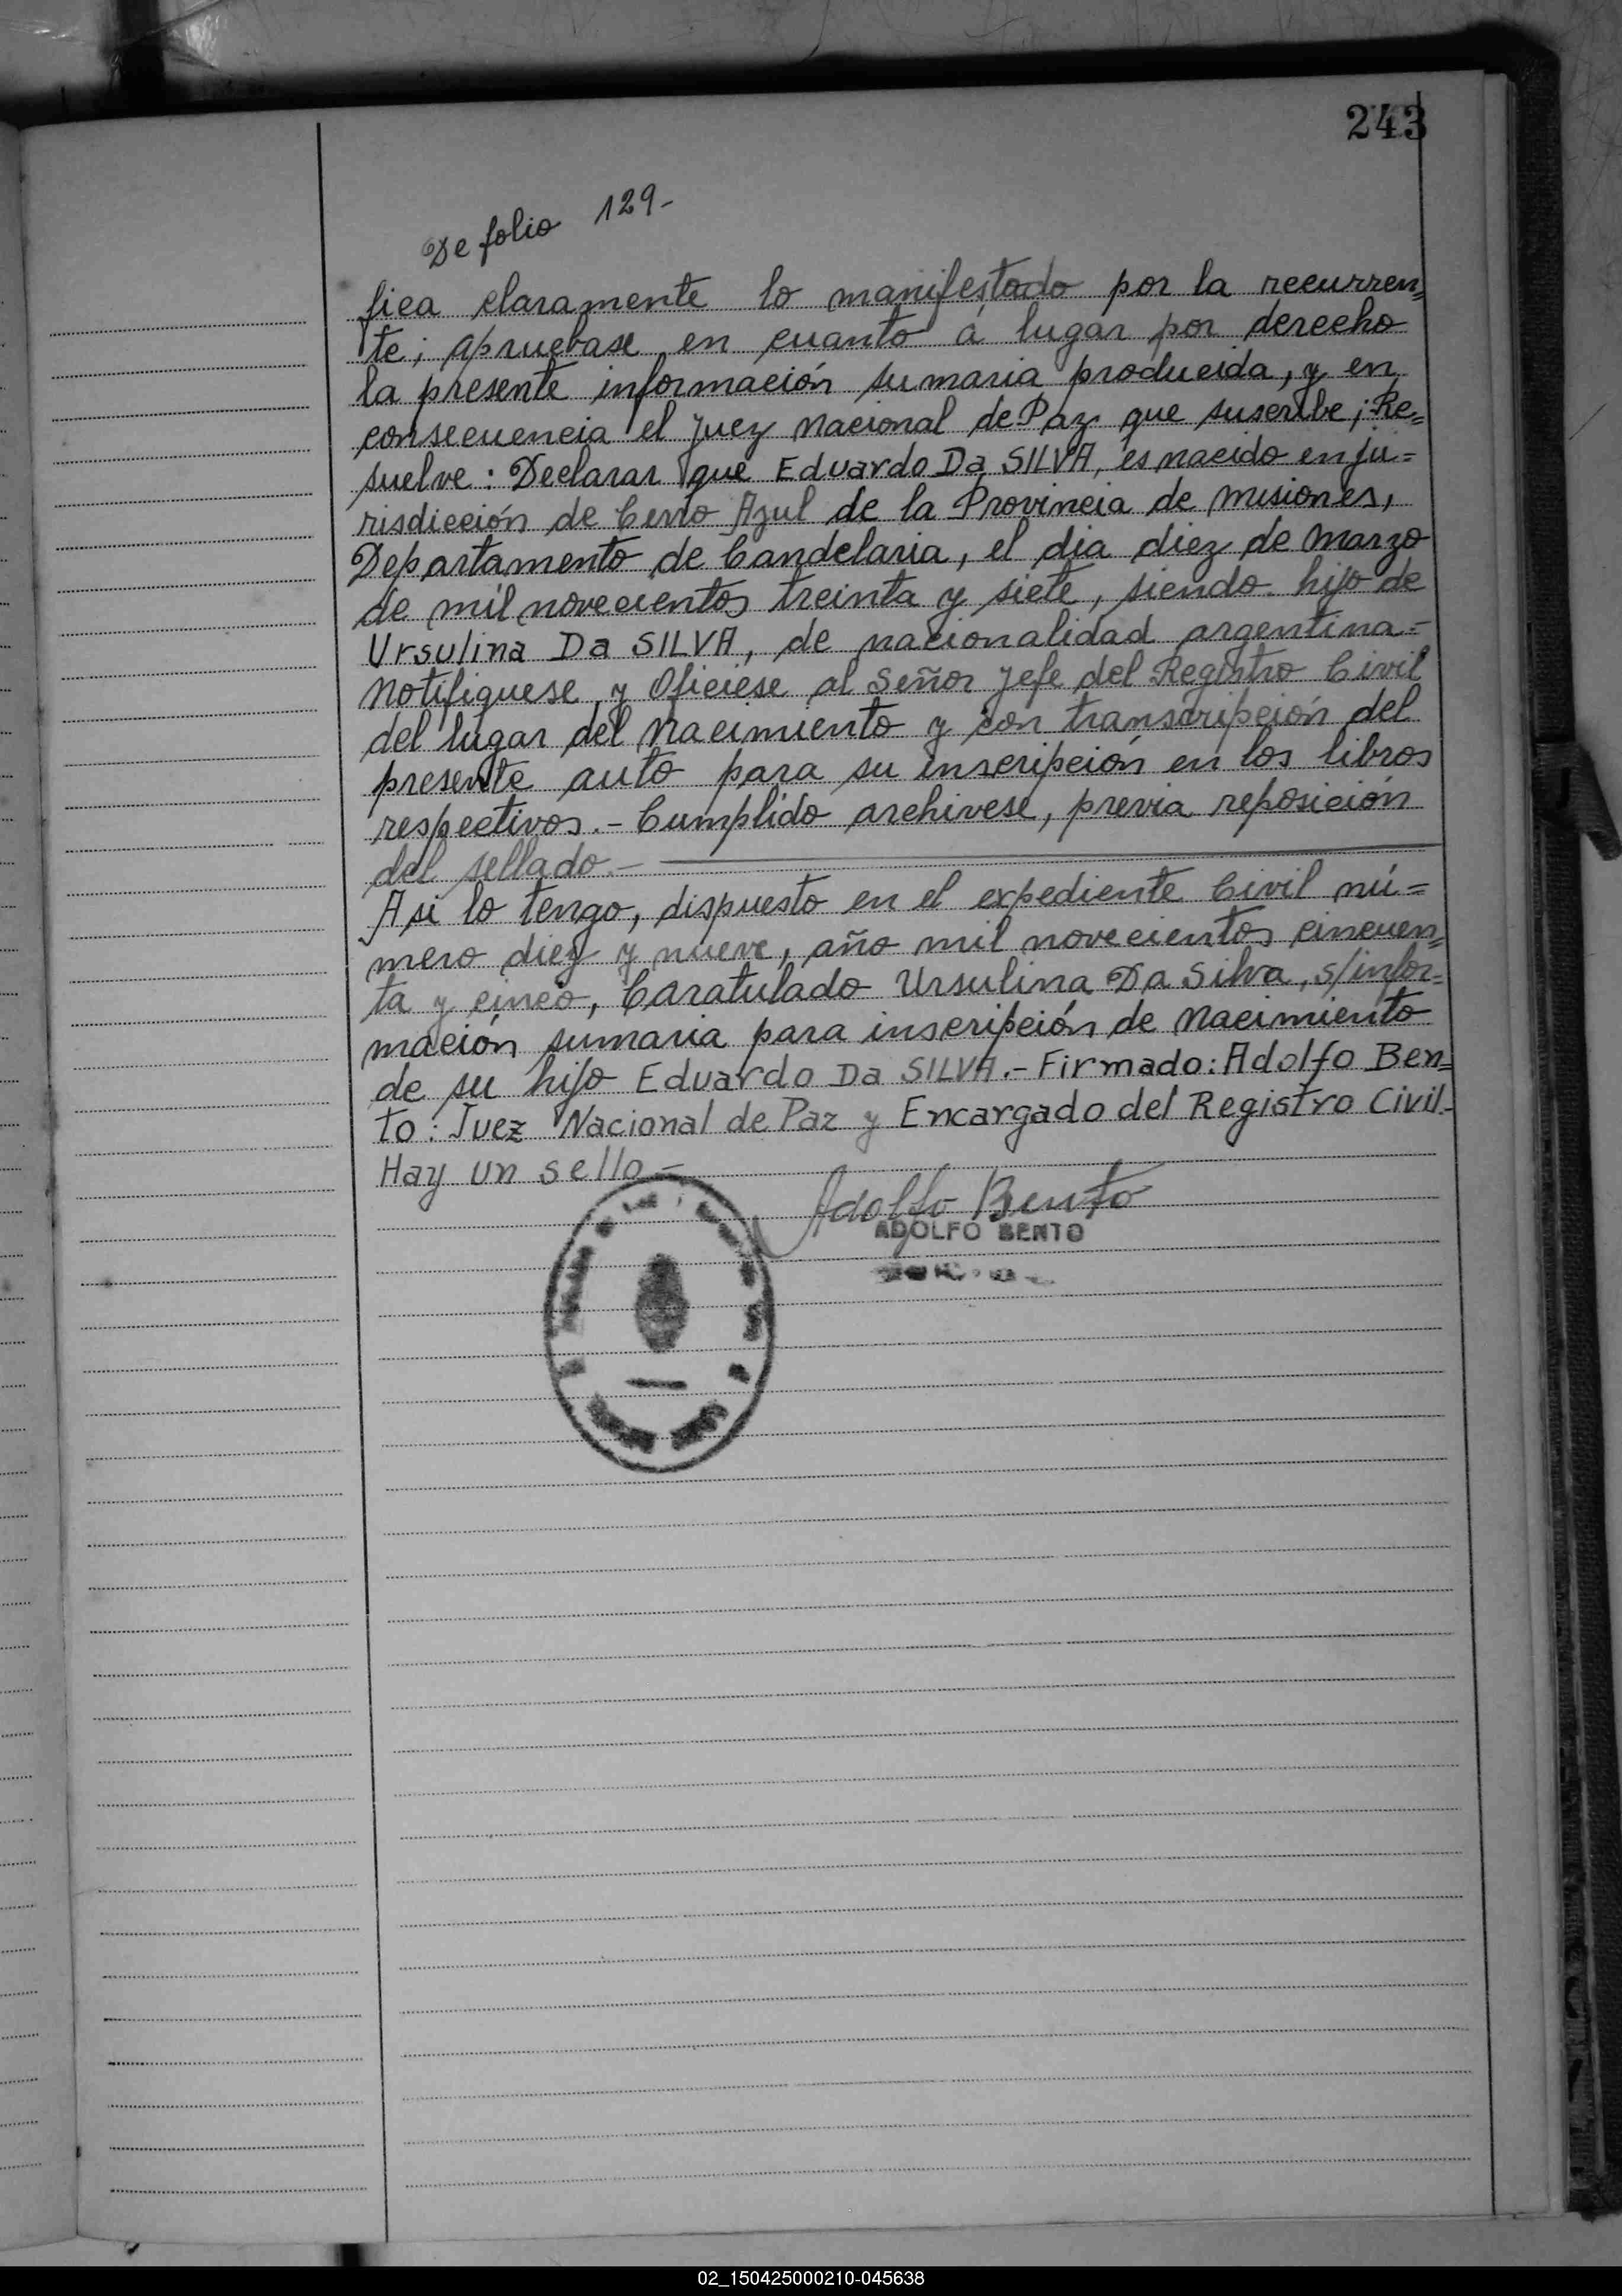 243
De folio 129-
fica claramente lo manifestado por la recurren=
te; apruebase en cuanto á lugar por derecho
la presente información sumaria producida, y en
consecuencia el Juez Nacional de Paz que suscribe; Re=
suelve: Declarar que Eduardo Da SILVA, es nacido en ju=
risdicción de Cerro Azul de la Provincia de Misiones,
Departamento de Candelaria, el dia diez de Marzo
de mil novecientos treinta y siete, siendo hijo de
Ursulina Da SILVA, de nacionalidad argentina.=
Notifiquese y Oficiese al Señor Jefe del Registro Civil
del lugar del Nacimiento y con transcripción del
presente auto para su inscripción en los libros
respectivos.- Cumplido archivese, previa reposición
del sellado.-
Asi lo tengo, dispuesto en el expediente Civil nú=
mero diez y nueve, año mil novecientos cincuen=
ta y cinco, Caratulado Ursulina Da Silva, s/infor=
mación sumaria para inscripción de Nacimiento
de su hijo Eduardo Da SILVA.- Firmado: Adolfo Ben=
to: Juez Nacional de Paz y Encargado del Registro Civil.-
Hay un sello.-
Adolfo Bento
ADOLFO BENTO
02_150425000210-045638